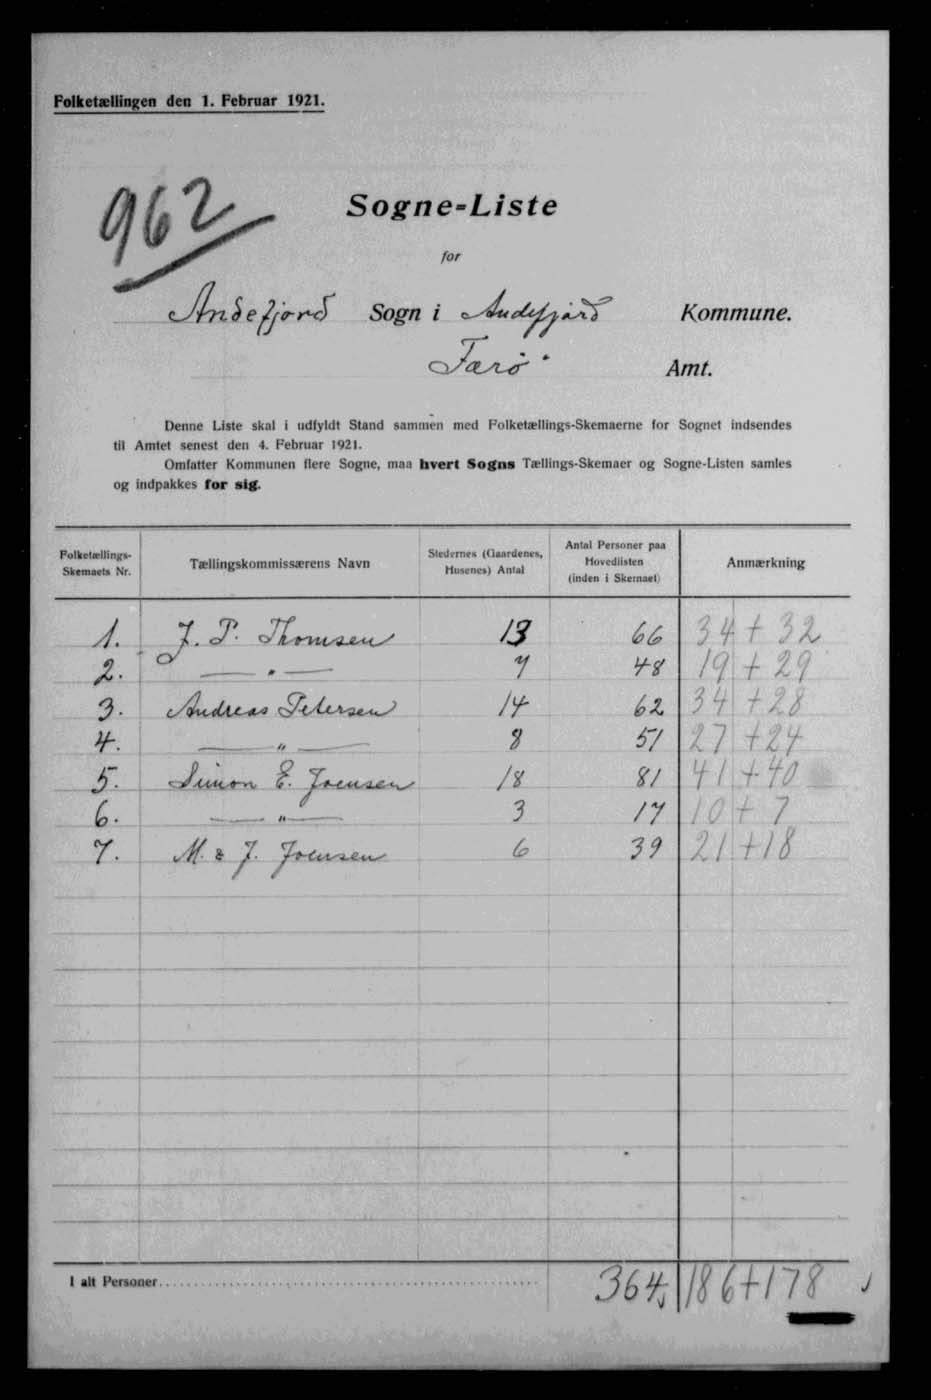 Folketællingen den 1. Februar 1921.
962
Sogne-Liste
for
Andefjord Sogn i Andefjord Kommune.
Færø Amt.
Denne Liste skal i udfyldt Stand sammen med Folketællings-Skemaerne for Sognet indsendes
til Amtet senest den 4. Februar 1921.
Omfatter Kommunen flere Sogne, maa hvert Sogns Tællings-Skemaer og Sogne-Listen samles
og indpakkes for sig.
Folketællings-Skemaets Nr. Tællingskommissærens Navn Stedernes (Gaardenes, Husenes) Antal Antal Personer paa Hovedlisten (inden i Skemaet) Anmærkning
1. J. P. Thomsen 13 66 34 + 32
2. — " — 7 48 19 + 29
3. Andreas Petersen 14 62 34 + 28
4. — " — 8 51 27 + 24
5. Simon E. Joensen 18 81 41 + 40
6. — " — 3 17 10 + 7
7. M. & J. Joensen 6 39 21 + 18
I alt Personer 364 186 + 178